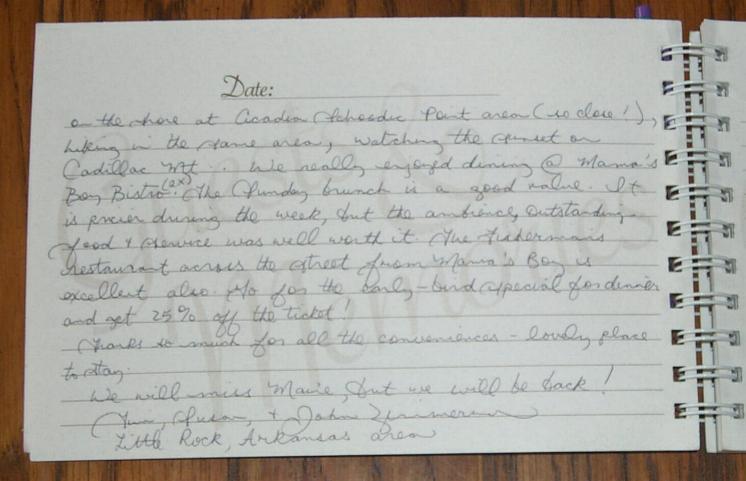 Date:
on the shore at Acadia Schoodic Point area (so close!),
hiking in the same area, watching the sunset on
Cadillac Mt. We really enjoyed dining @ Mama's
Boy Bistro (2x). The Sunday brunch is a good value. It
is pricier during the week, but the ambience, outstanding
food & service was well worth it. The Fisherman's
restaurant across the street from Mama's Boy is
excellent also. Go for the early-bird special for dinner
and get 25% off the ticket!
Thanks so much for all the conveniences - lovely place
to stay.
We will miss Maine, but we will be back!
Susan, & John Zimmerman
Little Rock, Arkansas area
Guests &
Memories